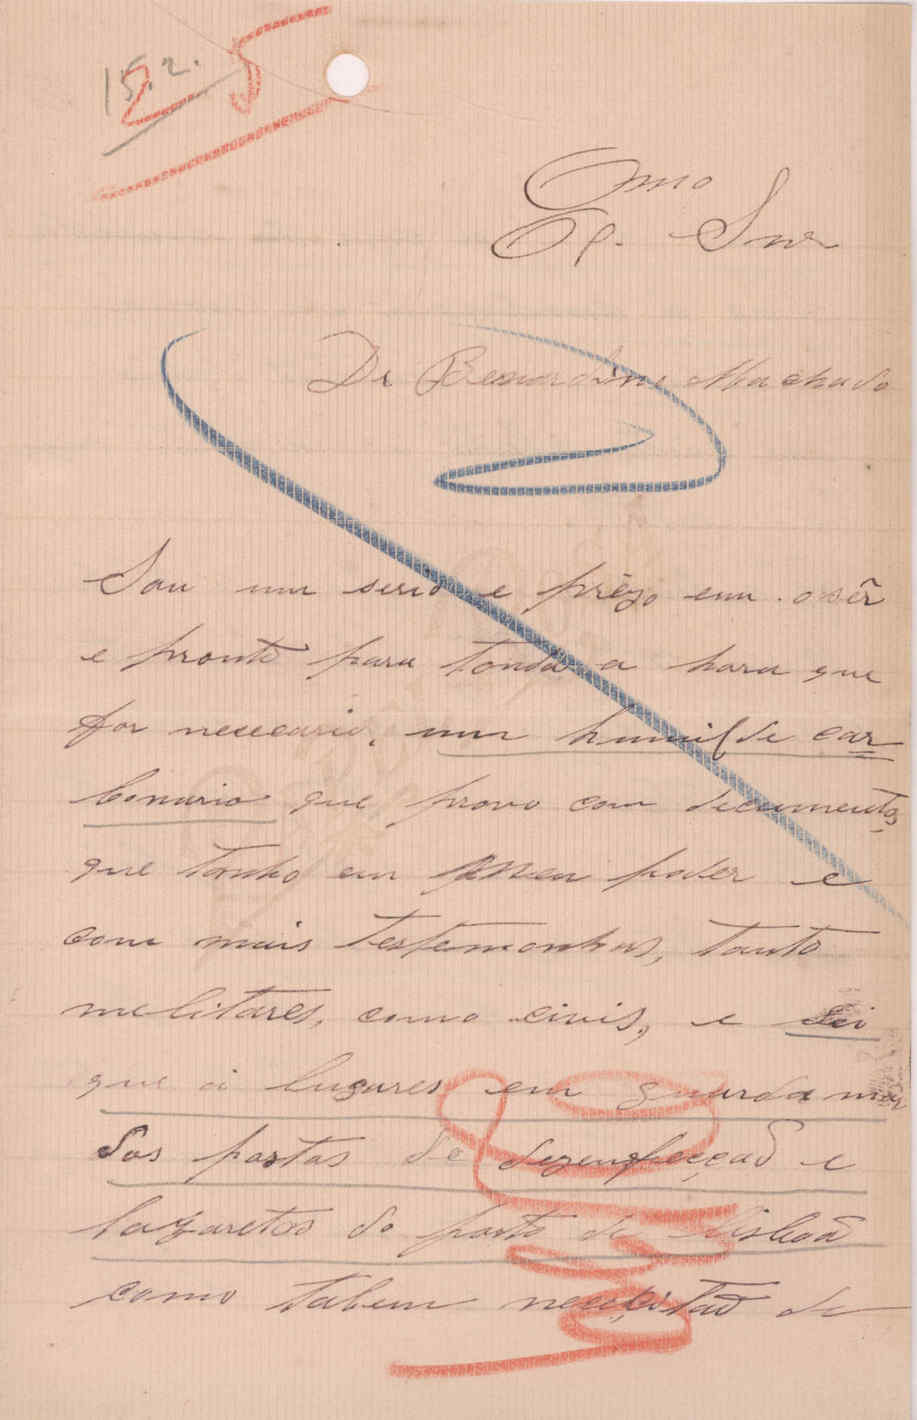 15.2.
25
Exmo
Snr
Dr Bernardino Machado
Sou um serio e prêzo em o sêr
e pronto para tonda a hora que
for necceario, um humilde car
bonario que provo com decumentos
que tanho em meu poder e
com mais testemonhas, tanto
melitares, como civis, e sei
que á lugares em guarda mor
dos postos de dezenfecçaõ e
lazaretos do porto de Lisboa
como tabem neceçitaõ de